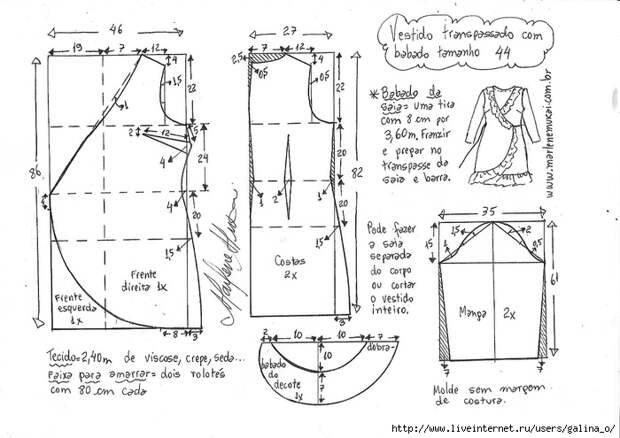 Vestido transpassado com
babado tamanho 44
46
19
7
12
4
15
22
1
86
2
12
1,5
4
24
4
20
1,5
Frente
direita 1x
Frente
esquerda
1x
8
3
Marlene Mukai
27
7
12
2,5
0,5
4
0,5
22
20
82
1
2
1
20
1,5
Costas
2x
3
* Babado da
saia = uma tira
com 8 cm por
3,60m. Franzir
e pregar no
transpasse da
saia e barra.
www.marlenemukai.com.br
Pode fazer
a saia
separada
do corpo
ou cortar
o vestido
inteiro.
35
15
1,5
2
1
0,5
61
Manga
2x
7
7
Molde sem margem
de costura.
2
10
10
7
10
dobra
babado
do
decote
1x
7
Tecido = 2,40m de viscose, crepe, seda...
Faixa para amarrar = dois rolotês
com 80 cm cada
http://www.liveinternet.ru/users/galina_o/